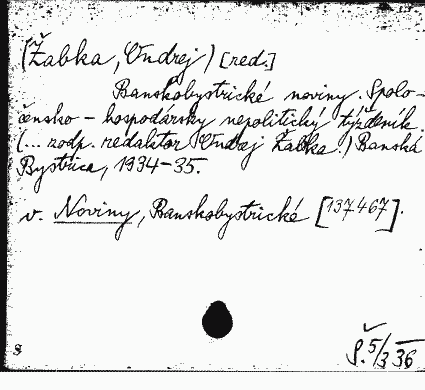 (Žabka, Ondrej) [red.]
Banskobystrické noviny. Spolo-
čensko - hospodársky nepolitický týždeník.
(... zodp. redaktor Ondrej Žabka.) Banská
Bystrica, 1934-35.
v. Noviny, Banskobystrické [137467].
8
Š. 5/3 36